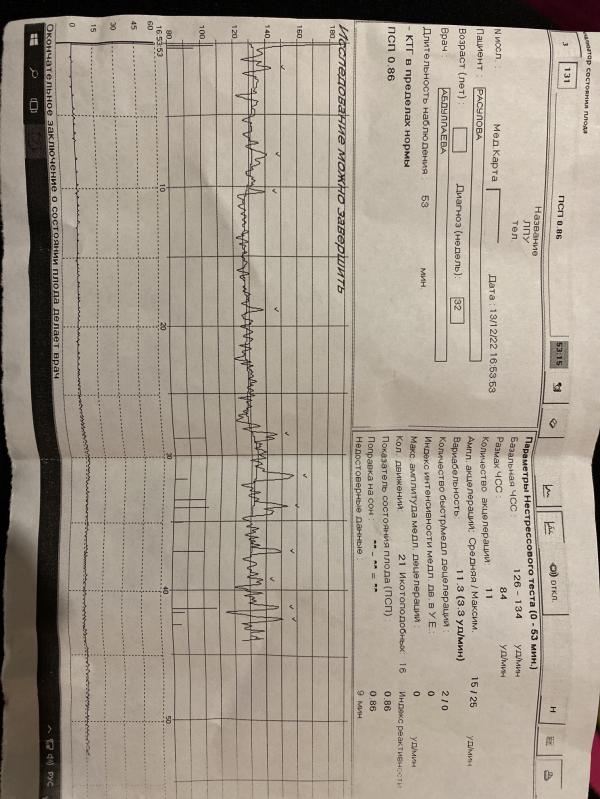 изатор состояния плода
3 131 ПСП 0.86 53:15 откл. H
Название
ЛПУ
тел
N иссл. : Мед.Карта Дата : 13/12/22 16:53:53
Пациент : РАСУЛОВА
Возраст (лет) : Диагноз (недель): 32
Врач : АБДУЛЛАЕВА
Длительность наблюдения : 53 мин.
- КТГ в пределах нормы
ПСП 0.86
Параметры Нестрессового теста (0 - 53 мин.)
Базальная ЧСС : 126 - 134 уд/мин
Размах ЧСС : 84 уд/мин
Количество акцелераций: 11
Ампл. акцелераций: Средняя / Максим. 15 / 25 уд/мин
Вариабельность: 11.3 (3.3 уд/мин)
Количество быстр/медл децелераций : 2 / 0
Индекс интенсивности медл. дв. в У.Е : 0
Макс. амплитуда медл. децелераций : 0 уд/мин
Кол. движений: 21 Икотоподобных: 16 Индекс реактивности
Показатель состояния плода (ПСП) 0.86
Поправка на сон : -- - -- = -- 0.86
Недостоверные данные : 9 мин
Исследование можно завершить
180
160
140
120
100
80
10 20 30 40 50
16:53:53
60
45
30
15
0
Окончательное заключение о состоянии плода делает врач
РУС